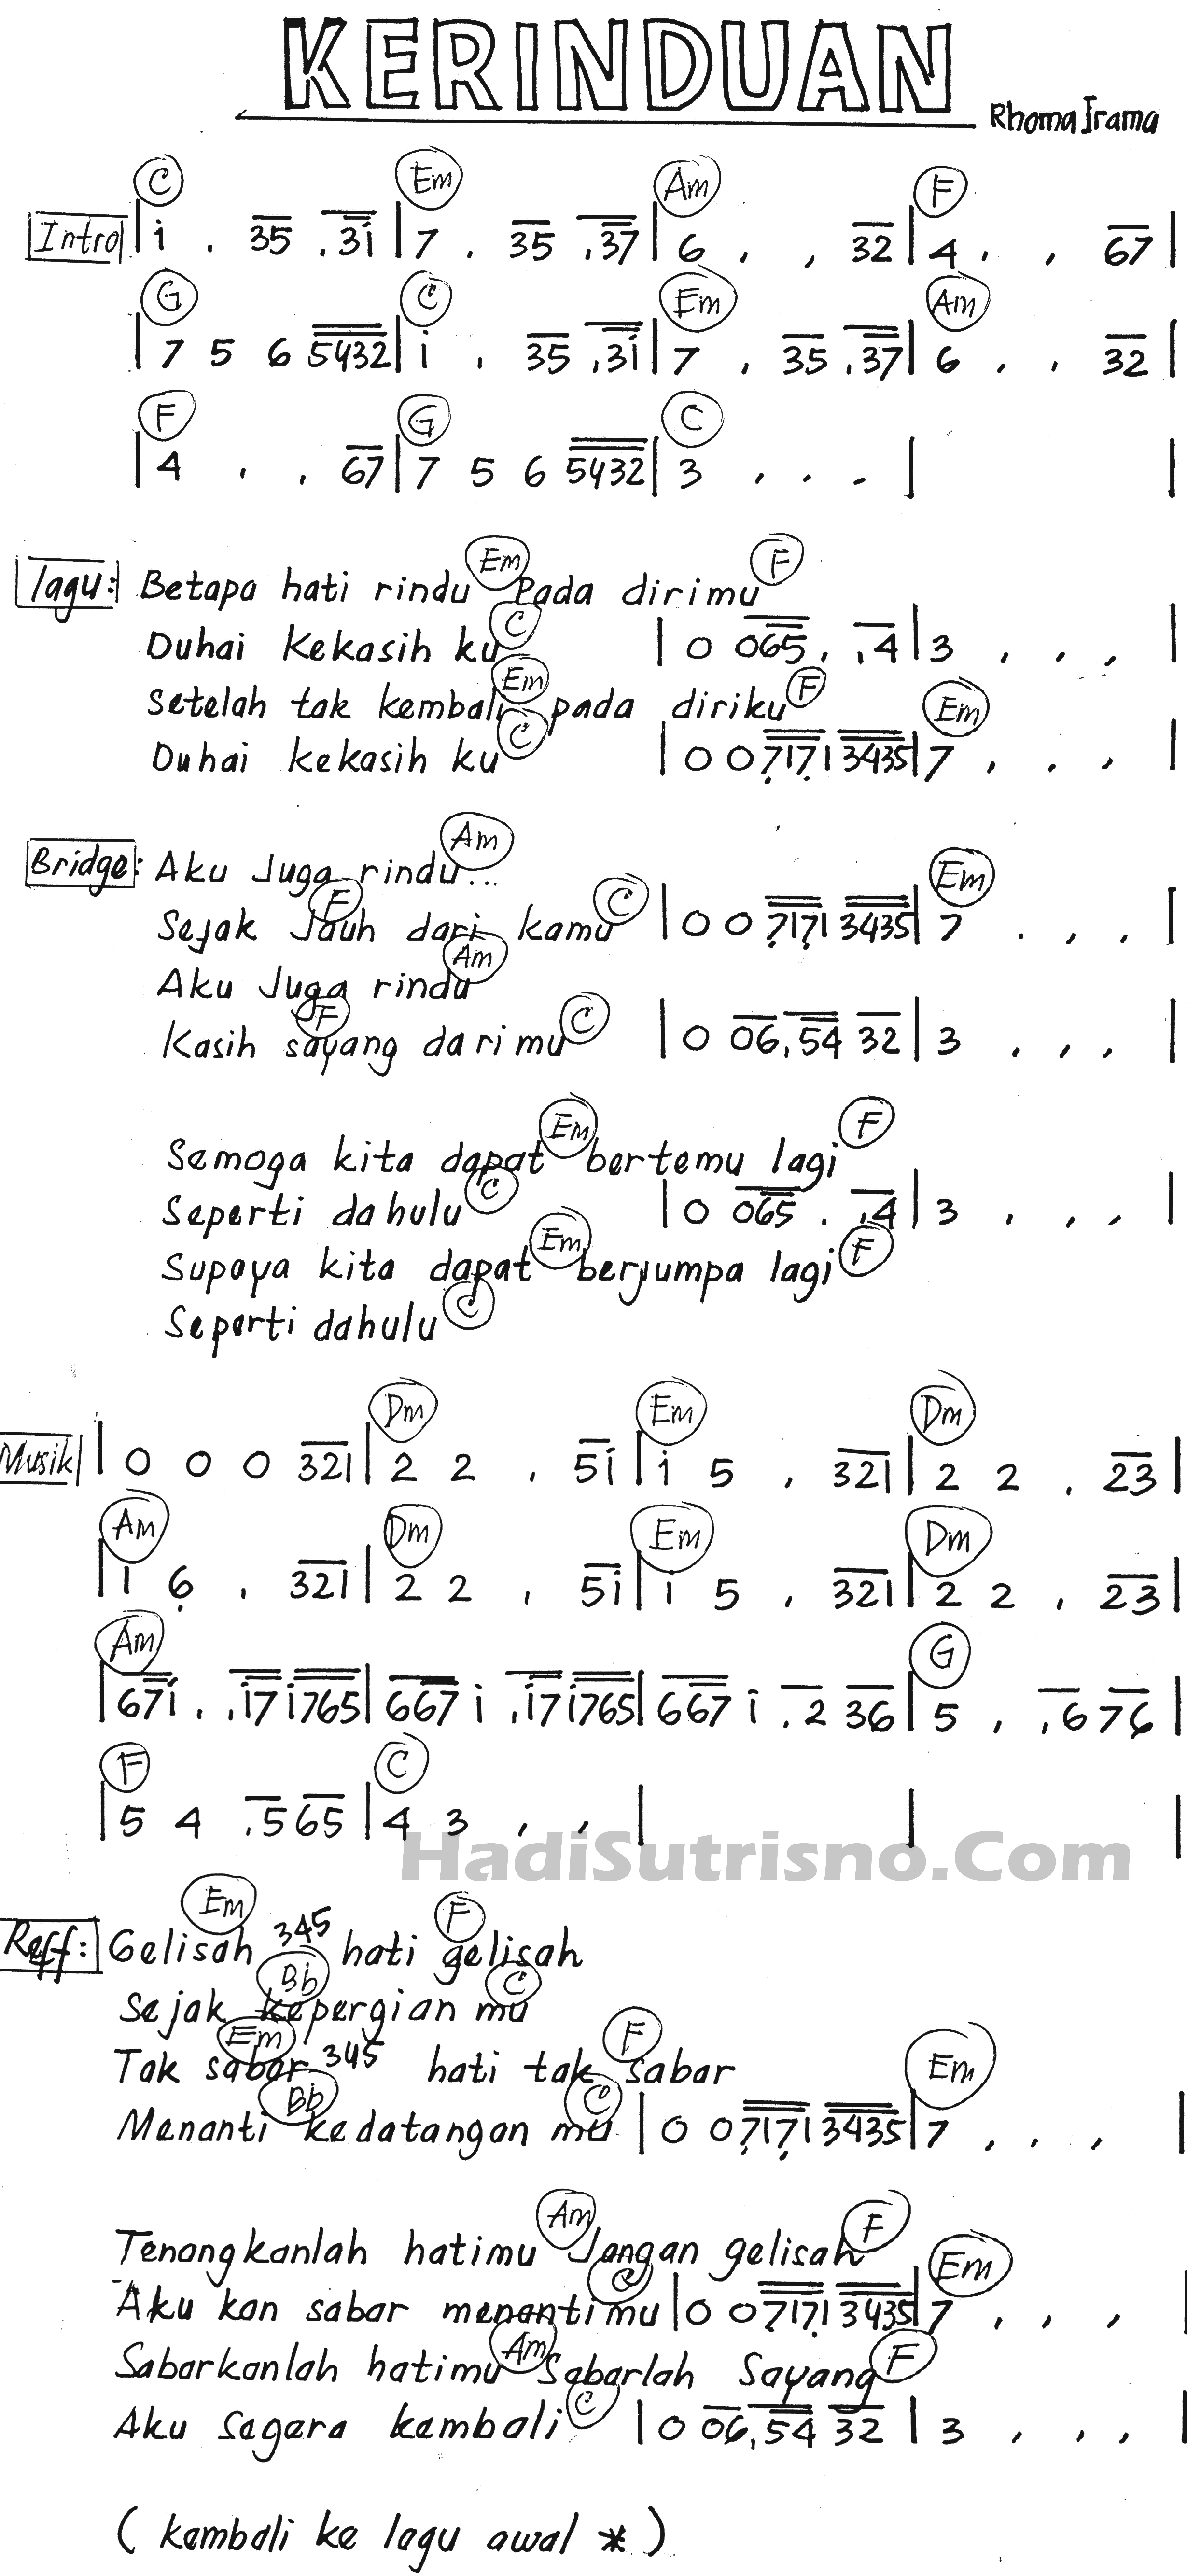 KERINDUAN
Rhoma Irama
C Em Am F
Intro | i . 35 .3i | 7 . 35 .37 | 6 . . 32 | 4 . . 67 |
G C Em Am
| 7 5 6 5432 | i . 35 .3i | 7 . 35 .37 | 6 . . 32 |
F G C
| 4 . . 67 | 7 5 6 5432 | 3 . . . | |
Em F
lagu: Betapa hati rindu pada dirimu
C
Duhai kekasih ku | 0 065 . .4 | 3 . . . |
Em F
Setelah tak kembali pada diriku
C Em
Duhai kekasih ku | 0 0 7171 3435 | 7 . . . |
Am
Bridge: Aku Juga rindu...
F C Em
Sejak Jauh dari kamu | 0 0 7171 3435 | 7 . . . |
Am
Aku Juga rindu
F C
Kasih sayang darimu | 0 06 .54 32 | 3 . . . |
Em F
Semoga kita dapat bertemu lagi
C
Seperti dahulu | 0 065 . .4 | 3 . . . |
Em F
Supaya kita dapat berjumpa lagi
C
Seperti dahulu
Dm Em Dm
Musik | 0 0 0 321 | 2 2 . 5i | i 5 . 321 | 2 2 . 23 |
Am Dm Em Dm
| 1 6 . 321 | 2 2 . 5i | i 5 . 321 | 2 2 . 23 |
Am G
| 67i . .i7 i765 | 667 i .i7 i765 | 667 i .2 36 | 5 . .6 76 |
F C
| 5 4 .5 65 | 4 3 . . | | |
HadiSutrisno.Com
Em F
Reff: Gelisah 345 hati gelisah
Bb C
Sejak kepergian mu
Em F
Tak sabar 345 hati tak sabar
Bb C Em
Menanti kedatangan mu | 0 0 7171 3435 | 7 . . . |
Am F
Tenangkanlah hatimu Jangan gelisah
C Em
Aku kan sabar menantimu | 0 0 7171 3435 | 7 . . . |
Am F
Sabarkanlah hatimu Sabarlah Sayang
C
Aku segera kembali | 0 06 .54 32 | 3 . . . |
( kembali ke lagu awal * )